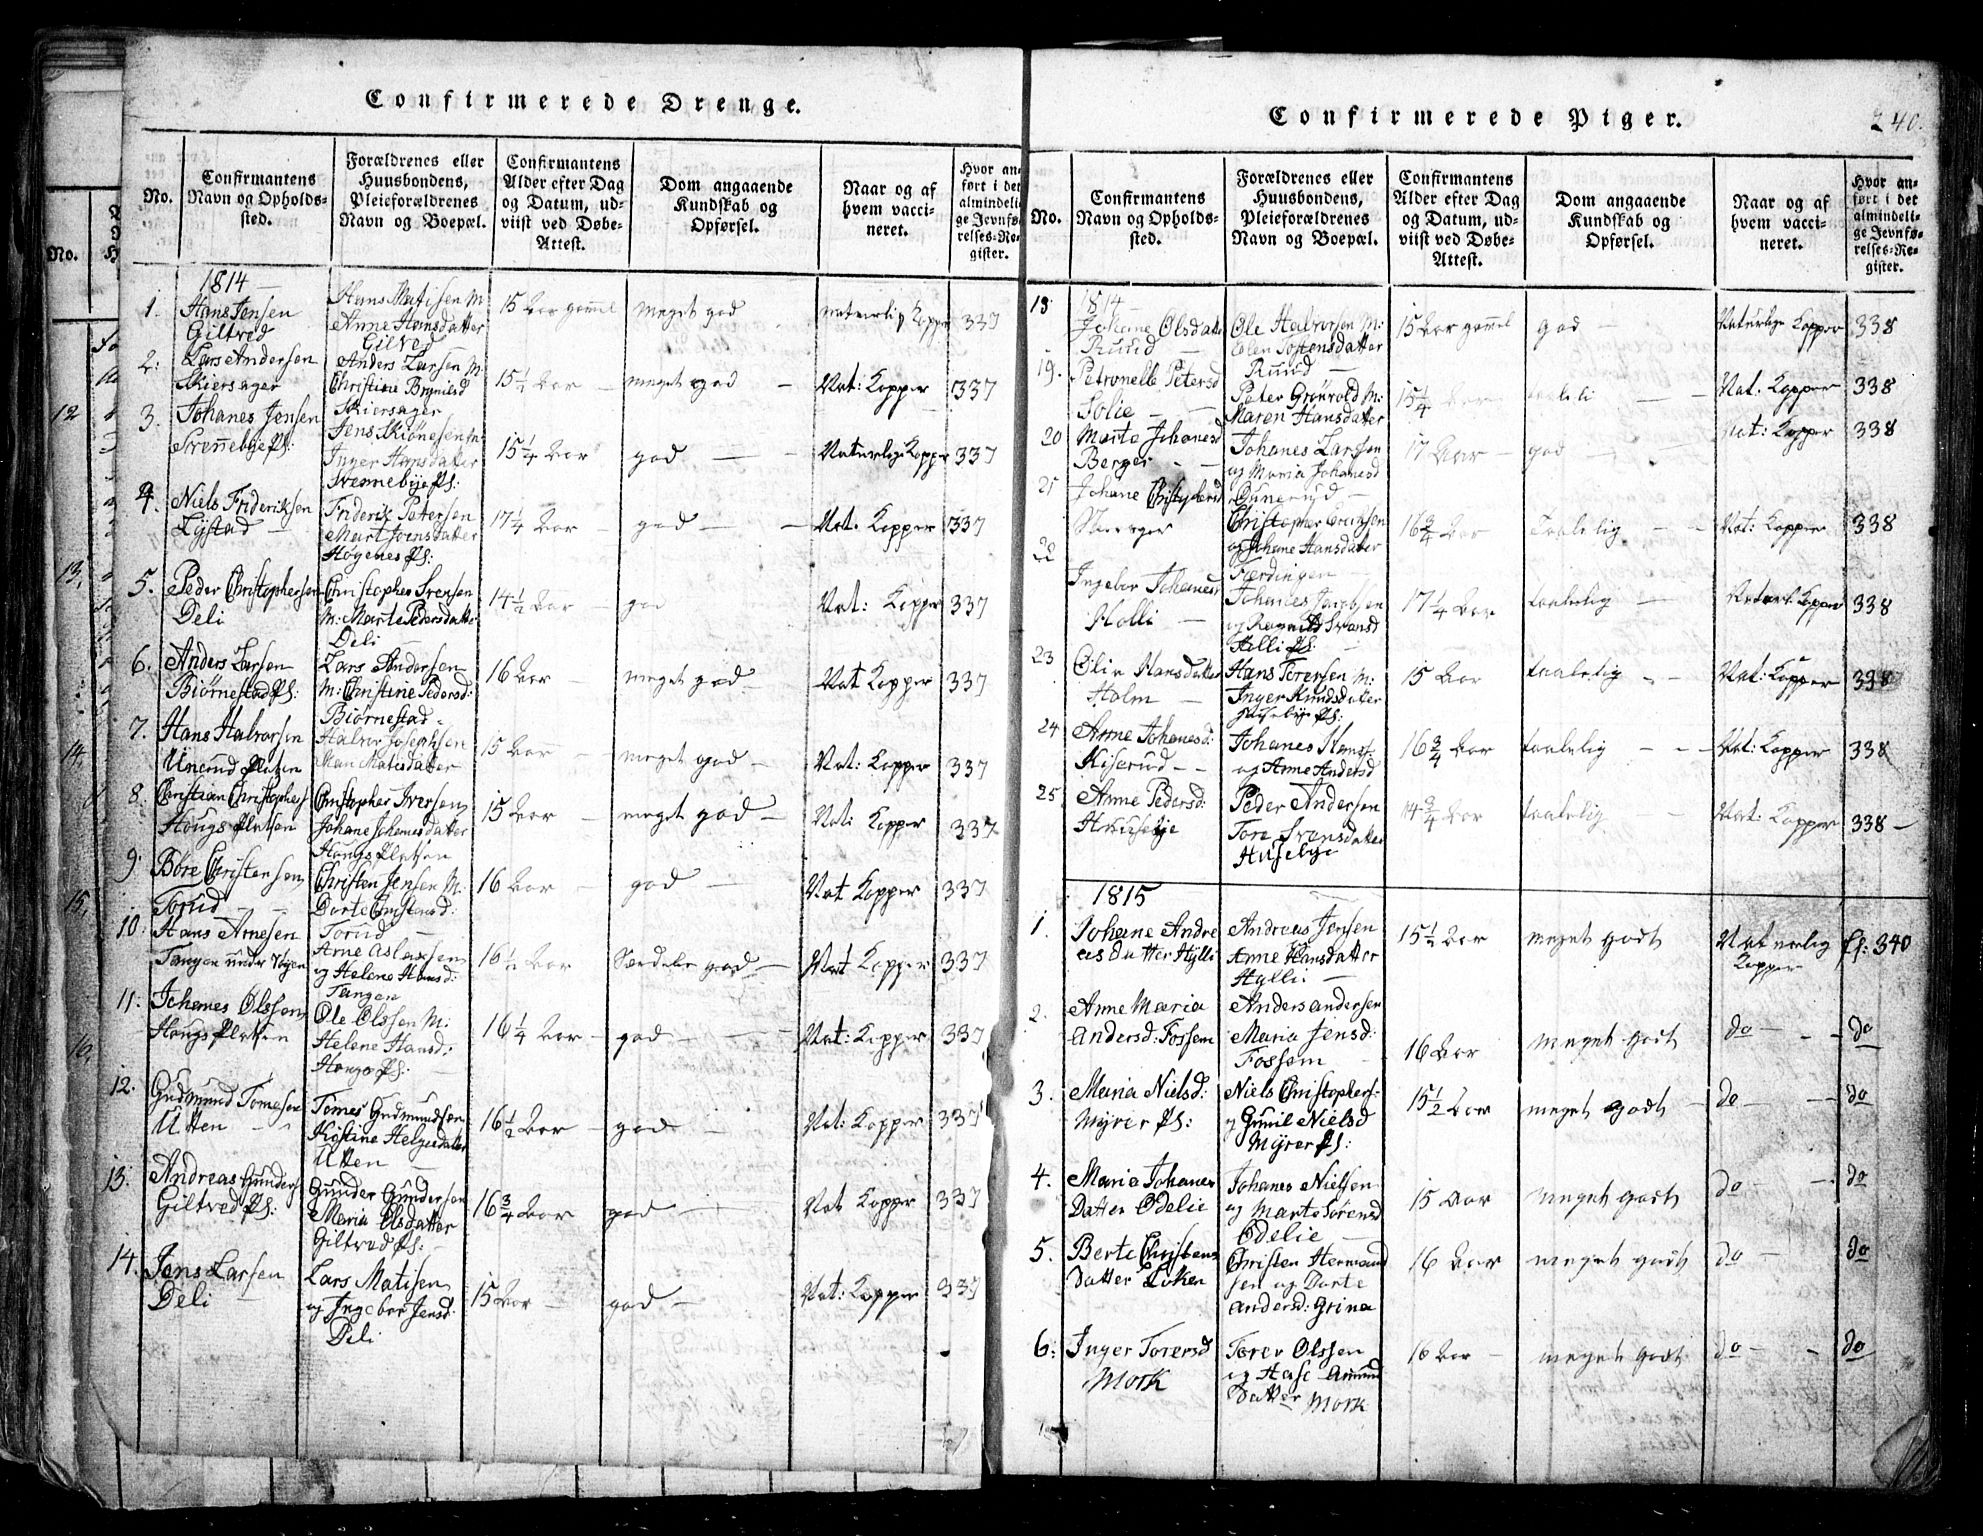 Confirmerede Drenge.
No.
Confirmantens Navn og Opholds-sted.
Forældrenes eller Huusbondens, Pleieforældrenes Navn og Boepæl.
Confirmantens Alder efter Dag og Datum, ud-viist ved Døbe-Attest.
Dom angaaende Kundskab og Opførsel.
Naar og af hvem vacci-neret.
Hvor an-ført i det almindeli-ge Jevnfø-relses-Re-gister.
1814
1. Hans Jensen Giltved
Hans Matisen M: Anne Hansdatter Gilved
15 Aar gamel
meget god
naturlig Kopper
337
2. Lars Andersen Skiersager
Anders Larsen M: Christine Skiersager
15 1/2 Aar
meget god
Nat: Kopper
337
3. Johanes Jensen Svennebye Ps:
Jens Inger Hansdatter Svennebye Ps:
15 1/4 Aar
god
Naturlige Kopper
337
4. Niels Frideriksen Lystad
Friderik Petersen Høgenes Ps:
17 1/4 Aar
god
Nat. Kopper
337
5. Peder Christophersen Deli
Christopher Svensen M: Marte Pedersdatter Deli
14 1/2 Aar
god
Nat: Kopper
337
6. Anders Larsen Biørnestad Ps:
Lars Andersen M: Christine Pedersd: Biørnestad
16 Aar
meget god
Nat Kopper
337
7. Hans Halvorsen Pladsen
Halvor Josephsen Mari Matisdatter
15 Aar
meget god
Nat: Kopper
337
8. Christian Christophers Hougs Pletsen
Christopher Iversen Johane Johanesdatter Hougs Pletsen
15 Aar
meget god
Nat: Kopper
337
9. Bore Christensen Torud
Christen Jensen M: Dorte Christensd: Torud
16 Aar
god
Nat Kopper
337
10. Hans Arnesen Tangen under
Arne Aslaksen og Helene Hansd: Tangen
16 1/2 Aar
Særdeles god
Nat Kopper
337
11. Johanes Olssen Hougs Pletsen
Ole Olssen M: Helene Hansd: Hougs Ps:
16 1/4 Aar
god
Nat: Kopper
337
12. Gudmund Tomesen Utten
Tomes Gudmundsen Kirstine Helgesdatter Utten
16 1/2 Aar
god
Nat: Kopper
337
13. Andreas Gunders Giltved Ps:
Gunder Gundersen Maria Olsdatter Giltved Ps:
16 3/4 Aar
god
Nat Kopper
337
14. Jens Larsen Deli
Lars Matisen og Ingebor Jensd: Deli
15 Aar
god
Nat: Kopper
337
Confirmerede Piger.
240.
No.
Confirmantens Navn og Opholds-sted.
Forældrenes eller Huusbondens, Pleieforældrenes Navn og Boepæl.
Confirmantens Alder efter Dag og Datum, ud-viist ved Døbe-Attest.
Dom angaaende Kundskab og Opførsel.
Naar og af hvem vacci-neret.
Hvor an-ført i det almindeli-ge Jevnfø-relses-Re-gister.
1814
18. Johane Olsdatter Ruud
Ole Halvorsen M: Eslen Tostensdatter Ruud
15 Aar gamel
god
Naturlige Kopper
338
19. Petronelle Petersd Solie
Peter Grønvold M: Maren Hansdatter
15 1/4 Aar
taaleli
Nat: Kopper
338
20 Marte Johanesd Berger
Johanes Larssen og Maria Johanesd Gunerud
17 Aar
god
Nat: Kopper
338
21 Johane Christophersd
Christopher og Johane Hansdatter Færdingen
16 3/4 Aar
Taalelig
Nat: Kopper
338
22 Ingebor Johanes Holli
Johanes Jacobsen og Svensd Holli Ps:
17 1/4 Aar
taalelig
Naturl Kopper
338
23 Olia Hansdatter Holm
Hans Torersen M: Inger Knudsdatter Huselye Ps:
15 Aar
taalelig
Nat: Kopper
338
24 Anne Johanesd: Kiserud
Johanes Hans og Anne Andersd
16 3/4 Aar
taalelig
Nat: Kopper
338
25 Anne Pedersd: Huuselye
Peder Andersen Tore Svensdatter Huselye
14 3/4 Aar
taalelig
Nat: Kopper
338
1815
1. Johane Andreasdatter Hylli
Andreas Jensen Anne Hansdatter Hylli
15 1/2 Aar
meget godt
Naturlig Kopper
f: 340
2. Anne Maria Andersd: Fossem
Anders andersen Maria Jensd: Fossem
16 Aar
meget godt
do
do
3. Maria Nielsd: Myrer Ps:
Niels Christophers: og Gunil Nielsd Myrer Ps:
15 1/2 Aar
meget godt
do
do
4. Maria Johanes Datter Odelie
Johanes Nielsen og Marte Sørensd Odelie
15 Aar
meget godt
do
do
5. Berte Christens Datter Løken
Christen Hermandsen og Dorte Andersd: Grina
16 Aar
meget godt
do
do
6: Inger Torersd Mork
Torer Olssen og Hase Amund Datter Mork
16 Aar
meget godt
do
do
No.
12
13,
14,
15,